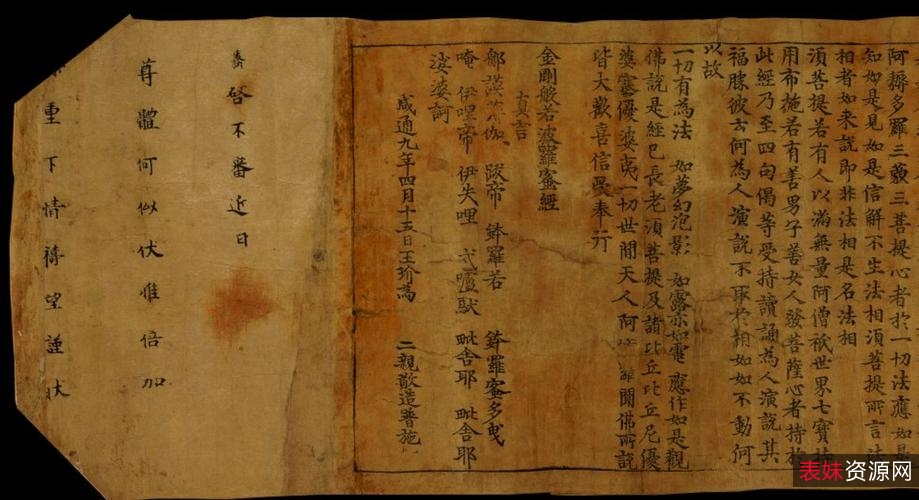 阿耨多羅三藐三菩提心者於一切法應如是
知如是見如是信解不生法相須菩提所言法
相者如来說即非法相是名法相
須菩提若有人以滿無量阿僧祇世界七寶持
用布施若有善男子善女人發菩薩心者持於
此經乃至四句偈等受持讀誦為人演說其
福勝彼云何為人演說不取於相如如不動何
以故
一切有為法 如夢幻泡影 如露亦如電 應作如是觀
佛說是經已長老須菩提及諸比丘比丘尼優
婆塞優婆夷一切世間天人阿 羅聞佛所說
皆大歡喜信受奉行
金剛般若波羅蜜經
真言
那謨 伽 跋帝 鉢羅若 鉢羅蜜多曳
唵 伊哩帝 伊失哩 戍嚧馱 毗舍耶 毗舍耶
娑婆訶
咸通九年四月十五日王玠為 二親敬造普施
啓不審近日
尊體何似伏惟倍加
重下情禱望謹狀
表妹资源网